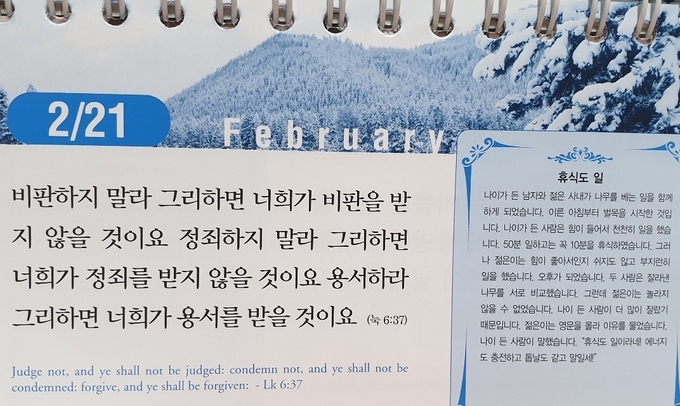 2/21
February
비판하지 말라 그리하면 너희가 비판을 받
지 않을 것이요 정죄하지 말라 그리하면
너희가 정죄를 받지 않을 것이요 용서하라
그리하면 너희가 용서를 받을 것이요 (눅 6:37)
Judge not, and ye shall not be judged: condemn not, and ye shall not be
condemned: forgive, and ye shall be forgiven: - Lk 6:37
휴식도 일
나이가 든 남자와 젊은 사내가 나무를 베는 일을 함께
하게 되었습니다. 이른 아침부터 벌목을 시작한 것입
니다. 나이가 든 사람은 힘이 들어서 천천히 일을 했습
니다. 50분 일하고는 꼭 10분을 휴식하였습니다. 그러
나 젊은이는 힘이 좋아서인지 쉬지도 않고 부지런히
일을 했습니다. 오후가 되었습니다. 두 사람은 잘라낸
나무를 서로 비교했습니다. 그런데 젊은이는 놀라지
않을 수 없었습니다. 나이 든 사람이 더 많이 잘랐기
때문입니다. 젊은이는 영문을 몰라 이유를 물었습니다.
나이 든 사람이 말했습니다. "휴식도 일이라네! 에너지
도 충전하고 톱날도 갈고 말일세!"